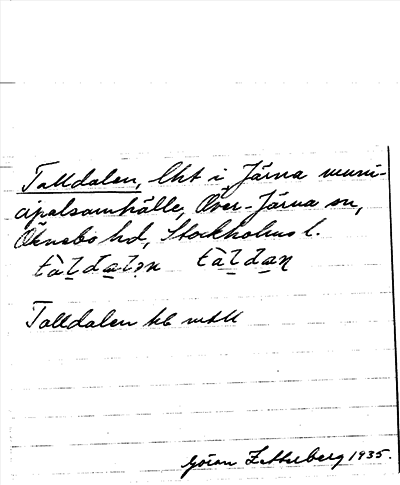 Talldalen, lht i Järna muni-
cipalsamhälle, Över-Järna sn,
Öknebo hd, Stockholms l.
tàldalən tàldan
Talldalen
Göran Zetterberg 1935.